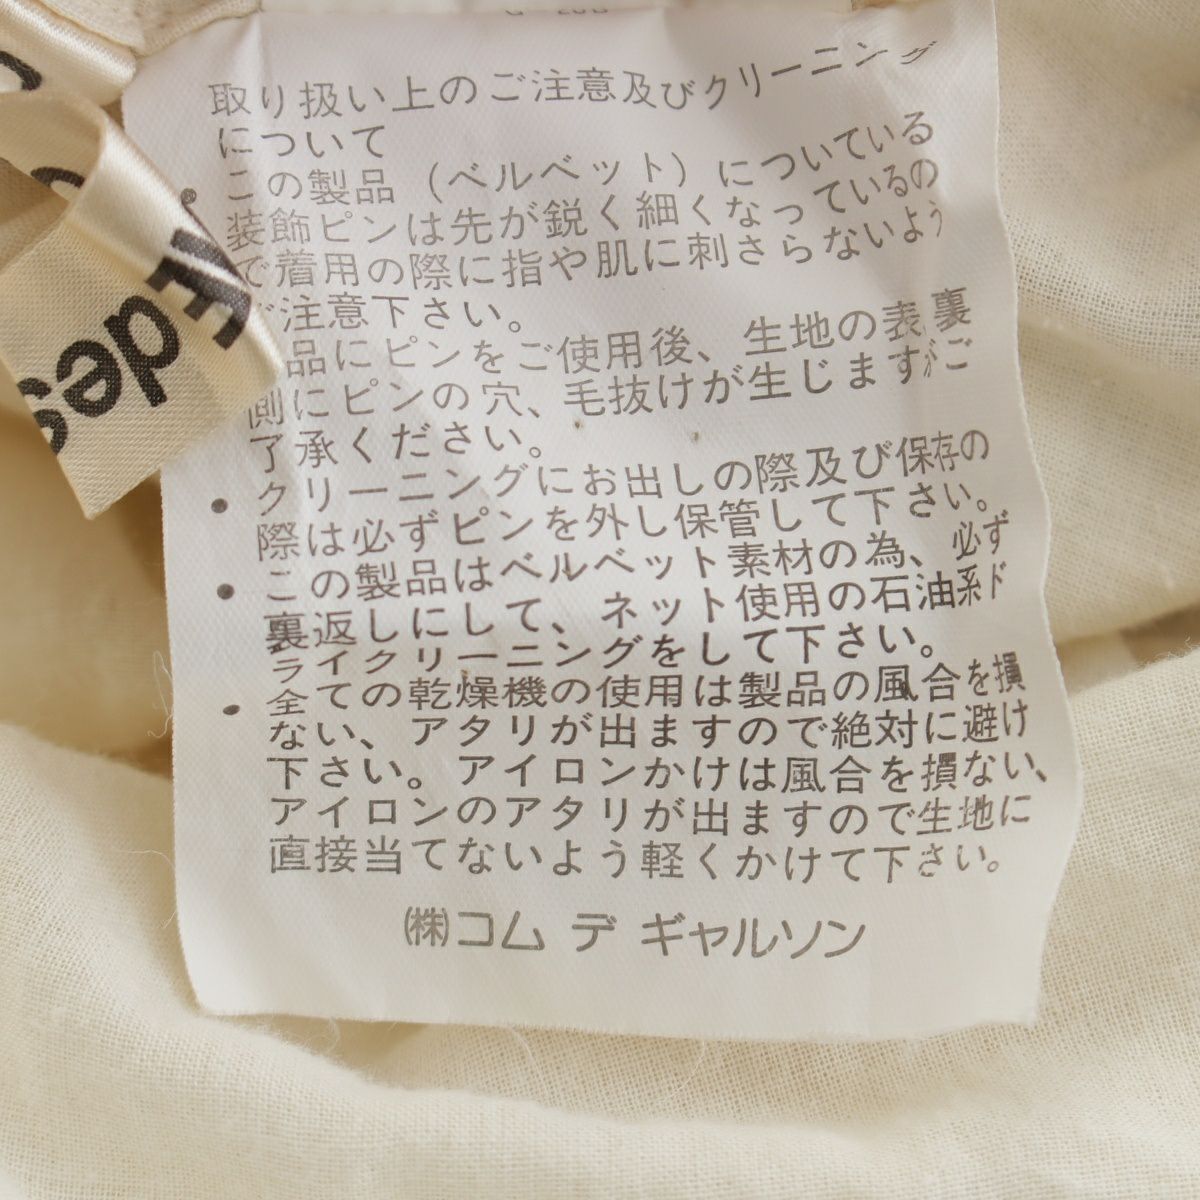 取り扱い上のご注意及びクリーニング
について
・この製品（ベルベット）についている
装飾ピンは先が鋭く細くなっているの
で着用の際に指や肌に刺さらないよう
ご注意下さい。
品にピンをご使用後、生地の表裏
側にピンの穴、毛抜けが生じますがご
了承ください。
・クリーニングにお出しの際及び保存の
際は必ずピンを外し保管して下さい。
・この製品はベルベット素材の為、必ず
裏返しにして、ネット使用の石油系ド
ライクリーニングをして下さい。
・全ての乾燥機の使用は製品の風合を損
ない、アタリが出ますので絶対に避け
下さい。アイロンかけは風合を損ない、
アイロンのアタリが出ますので生地に
直接当てないよう軽くかけて下さい。
㈱コム デ ギャルソン
des